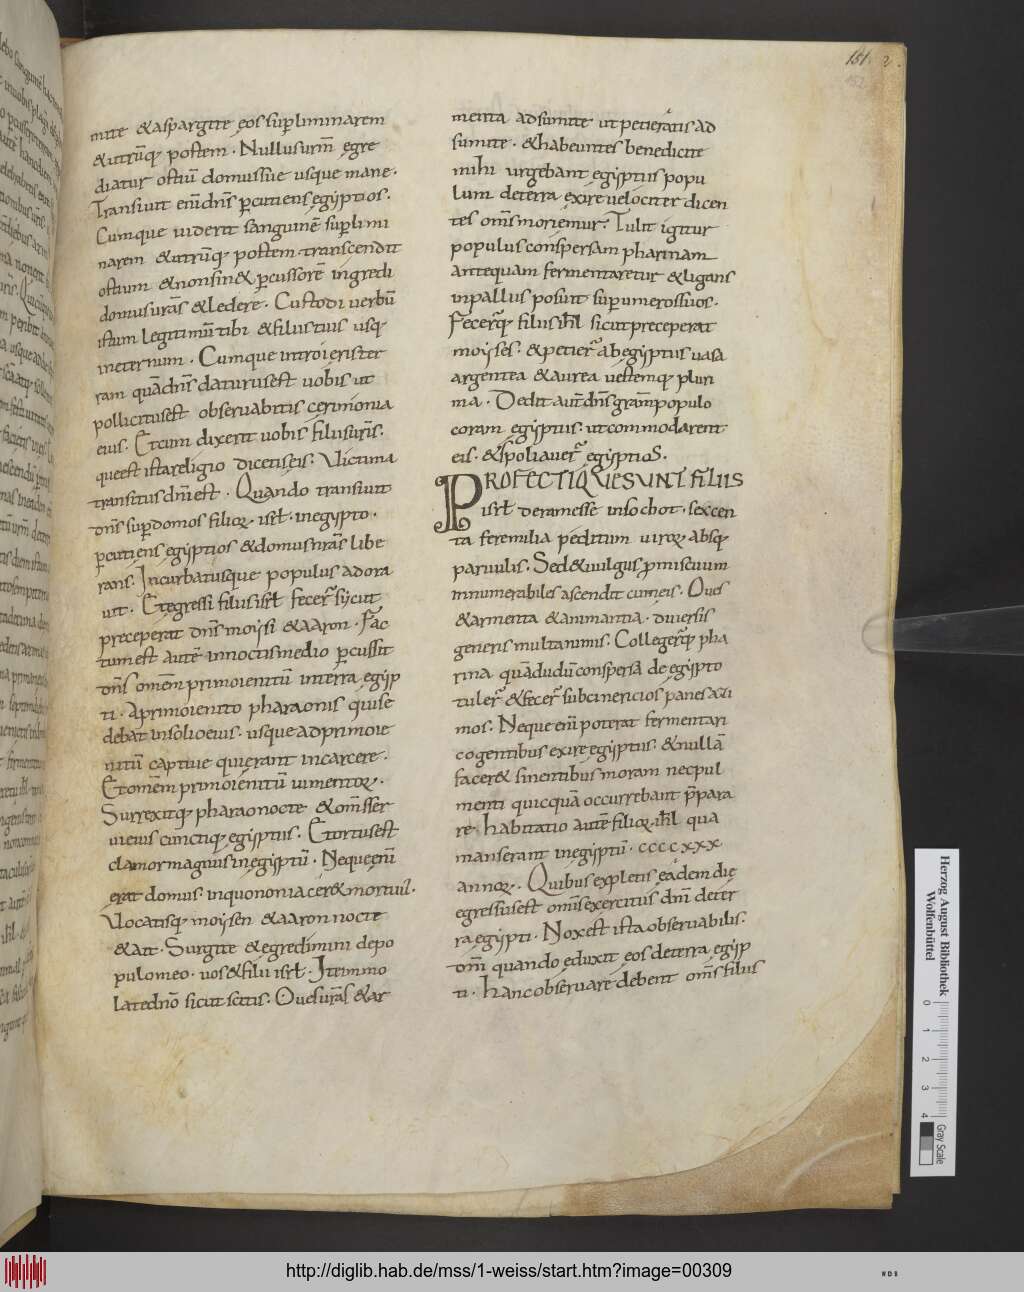 151. 2.
mite &aspargite eos sup̄liminarem
&utrūq; postem · Nullusurm̄ egre
diatur ostiū domussue usque mane ·
Transiuit eni᷑dn̄s p̄cutiensegiptios ·
Cumque uiderit sanguinē sup̄limi
narem &utrūq; postem · transcendit
ostium &nonsin& p̄cussorē ingredi
domusurās &ledere · Custodi uerbū
istum legitimūtibi &filiistuis usq;
ineternum · Cumque introierister
ram quādn̄s daturusest uobis ut
pollicitusest obseruabitis cerimonia
eius · Etcum dixerit uobis filiiusurīs ·
queest istareligio dicetiseis · Victima
transitus dnīest · Quando transiuit
dn̄s sup̄domos filioꝝ · isrł · inegypto ·
p̄cutiens egiptios &domusnrās libe
rans · Incurbatusque populus adora
uit · Etegressi filii isrł fecer̄ sicut
preceperat dn̄s moysi &aaron · Fac
tumest autē innoctismedio p̄cussit
dn̄s omēm primoienitū interra egip
ti · Aprimoienito pharaonis quise
debat insolioeius · usque adprimoie
nitū captiue quierant incarcere ·
Etomēm primoienitū iumentoꝝ ·
Surrexitq; pharaonocte &oms̄ser
uieius cunctiq; egiptius · Etortusest
clamormagnusinegiptū · Nequeenī
erat domus inquononiacer&mortuus ·
Vocatisq; moysen &aaronnocte
&ait · Surgite &egredimini depo
pulomeo · uos&filii isrł · Itemmo
latednō sicut scitis · Ouesurās &ar
menta adsumite ut petieratis ad
sumite · &habeuntes benedicite
mihi urgebant egiptiis popu
lum deterra exire uelociter dicen
tes oms̄moriemur · Tulit igitur
populus conspersam pharinam
antequam fermentaretur &ligans
inpallus posuit sup̄umerossuos ·
Fecer̄q; filiusihł sicutpreceperat
moyses · &petier̄ abegyptiis uasa
argentea &aurea uestemq; pluri
ma · Dedit aut̄dn̄sgratīāmpopulo
coram egiptiis · utcommodarent
eis · &spoliauer̄ egyptioS ·
PROFECTIQUESUNT FILIIS
isrł deramesse insochot · sexcen
ta feremilia peditum uiroꝝ absq;
paruulis · Sed&uulgus p̄miscuum
innumerabiles ascendit cumeis · Oues
&armenta &animantia · diuersis
generis multanimis · Collegerq̄; pha
rina quādudūconspersā de egipto
tuler̄ &fecer̄ subcinericios panesazi
mos · Neque enī poterat fermentari
cogentibus exire egiptiis · &nullā
facer& sinentibus moram necpul
menti quicquā occurrebant p̄para
re · habitatio autē filioꝝ ihł qua
manserant inegiptū · cccc xxx ·
annoꝝ · Quibus expletis eadem die
egressusest omīsexercitus dnī deter
ra egipti · Noxest ista obseruabilis ·
dnī quando eduxit eos deterra egip
ti · hancobseruare debent oms̄ filiis
Herzog August Bibliothek
Wolfenbüttel
0 1 2 3 4
Gray Scale
http://diglib.hab.de/mss/1-weiss/start.htm?image=00309